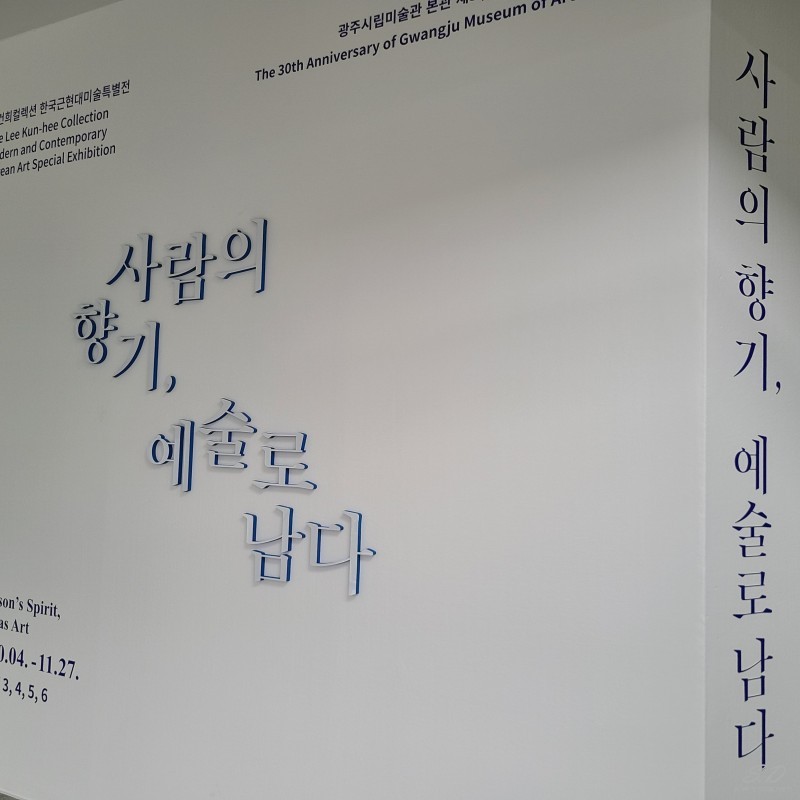 광주시립미술관 본관
The 30th Anniversary of Gwangju Museum of
한국근현대미술특별전
Lee Kun-hee Collection
and Contemporary
Art Special Exhibition
사람의
향기,
예술로
남다
Spirit,
as Art
-11.27.
3, 4, 5, 6
사람의 향기, 예술로 남다